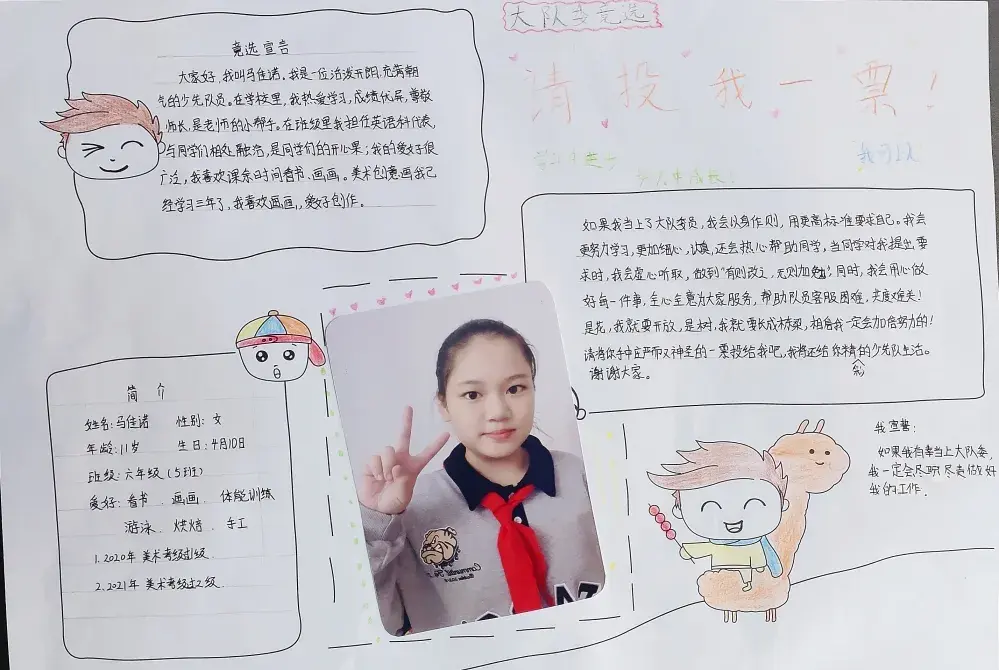 大队委竞选
请投我一票!
竞选宣言
大家好,我叫马佳诺。我是一位活泼开朗、充满朝
气的少先队员。在学校里,我热爱学习,成绩优异,尊敬
师长,是老师的小帮手。在班级里我担任英语科代表,
与同学们相处融洽,是同学们的开心果;我的爱好很
广泛,我喜欢课余时间看书、画画。美术创意画我已
经学习三年了,我喜欢画画,爱好创作。
中成长!
如果我当上了大队委员,我会以身作则,用更高标准要求自己。我会
更努力学习,更加细心,认真,还会热心帮助同学,当同学对我提出要
求时,我会虚心听取,做到"有则改之,无则加勉",同时,我会用心做
好每一件事,全心全意为大家服务,帮助队员客服困难,共度难关!
是花,我就要开放,是树,我就要长成栋梁,相信我一定会加倍努力的!
请将你手中庄严而又神圣的一票投给我吧,我将还给你精彩的少先队生活。
谢谢大家。
简介
姓名:马佳诺 性别:女
年龄:11岁 生日:4月10日
班级:六年级(5班)
爱好:看书、画画、体能训练
游泳、烘焙、手工
1.2020年美术考级过1级.
2.2021年美术考级过2级.
我宣誓:
如果我有幸当上大队委,
我一定会尽职尽责做好
我的工作.